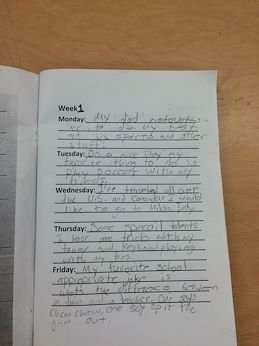 Week 1
Monday: My dad
me to do my best
at six sports and other
stuff!
Tuesday: On a nice day my
favorite thing to do is
play soccer with my
friends.
Wednesday: I've traveled all over
the U.S. and Canada. I would
like to go to Milan, Italy
Thursday: Some special talents
i have are tricks with my
tounge and keyboard playing
with my toes.
Friday: My favorite school
appropriate joke is
whats the difference between
a train and a teacher. One says
chew chew, one say spit the
gum out.